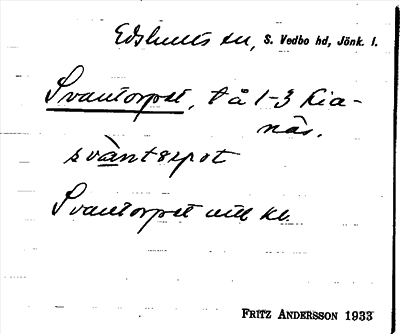 Edshults sn, S. Vedbo hd, Jönk. l.
Svantorpet, t å 1-3 Kia-
näs.
svànterpot
Svantorpet utt kb.
FRITZ ANDERSSON 1933